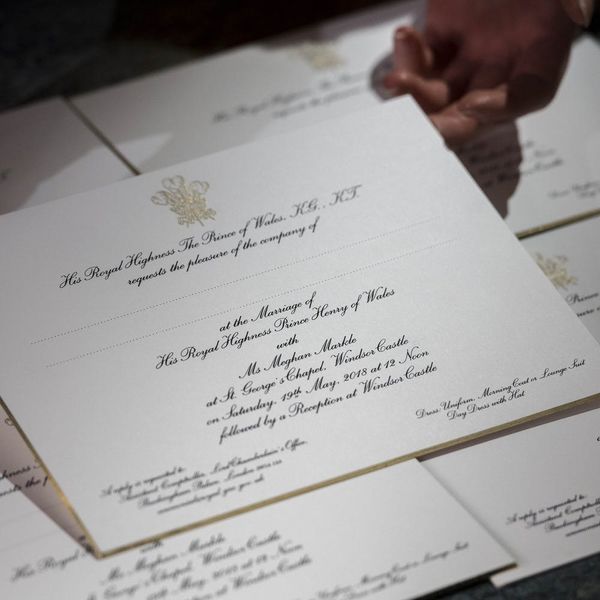 His Royal Highness The
His Royal Highness The Prince of Wales, K.G., K.T.
requests the pleasure of the company of
at the Marriage of
His Royal Highness Prince Henry of Wales
with
Ms Meghan Markle
at St. George's Chapel, Windsor Castle
on Saturday, 19th May, 2018 at 12 Noon
followed by a Reception at Windsor Castle
Dress: Uniform, Morning Coat or Lounge Suit
Day Dress with Hat
A reply is requested to:
Invitations Comptroller, Lord Chamberlain's Office,
Buckingham Palace, London
His Royal
requests the
His Royal
Ms Meghan Markle
at St. George's Chapel, Windsor Castle
on Saturday, 19th May, 2018 at 12 Noon
or Lounge Suit
with Hat
A reply is requested to:
Buckingham